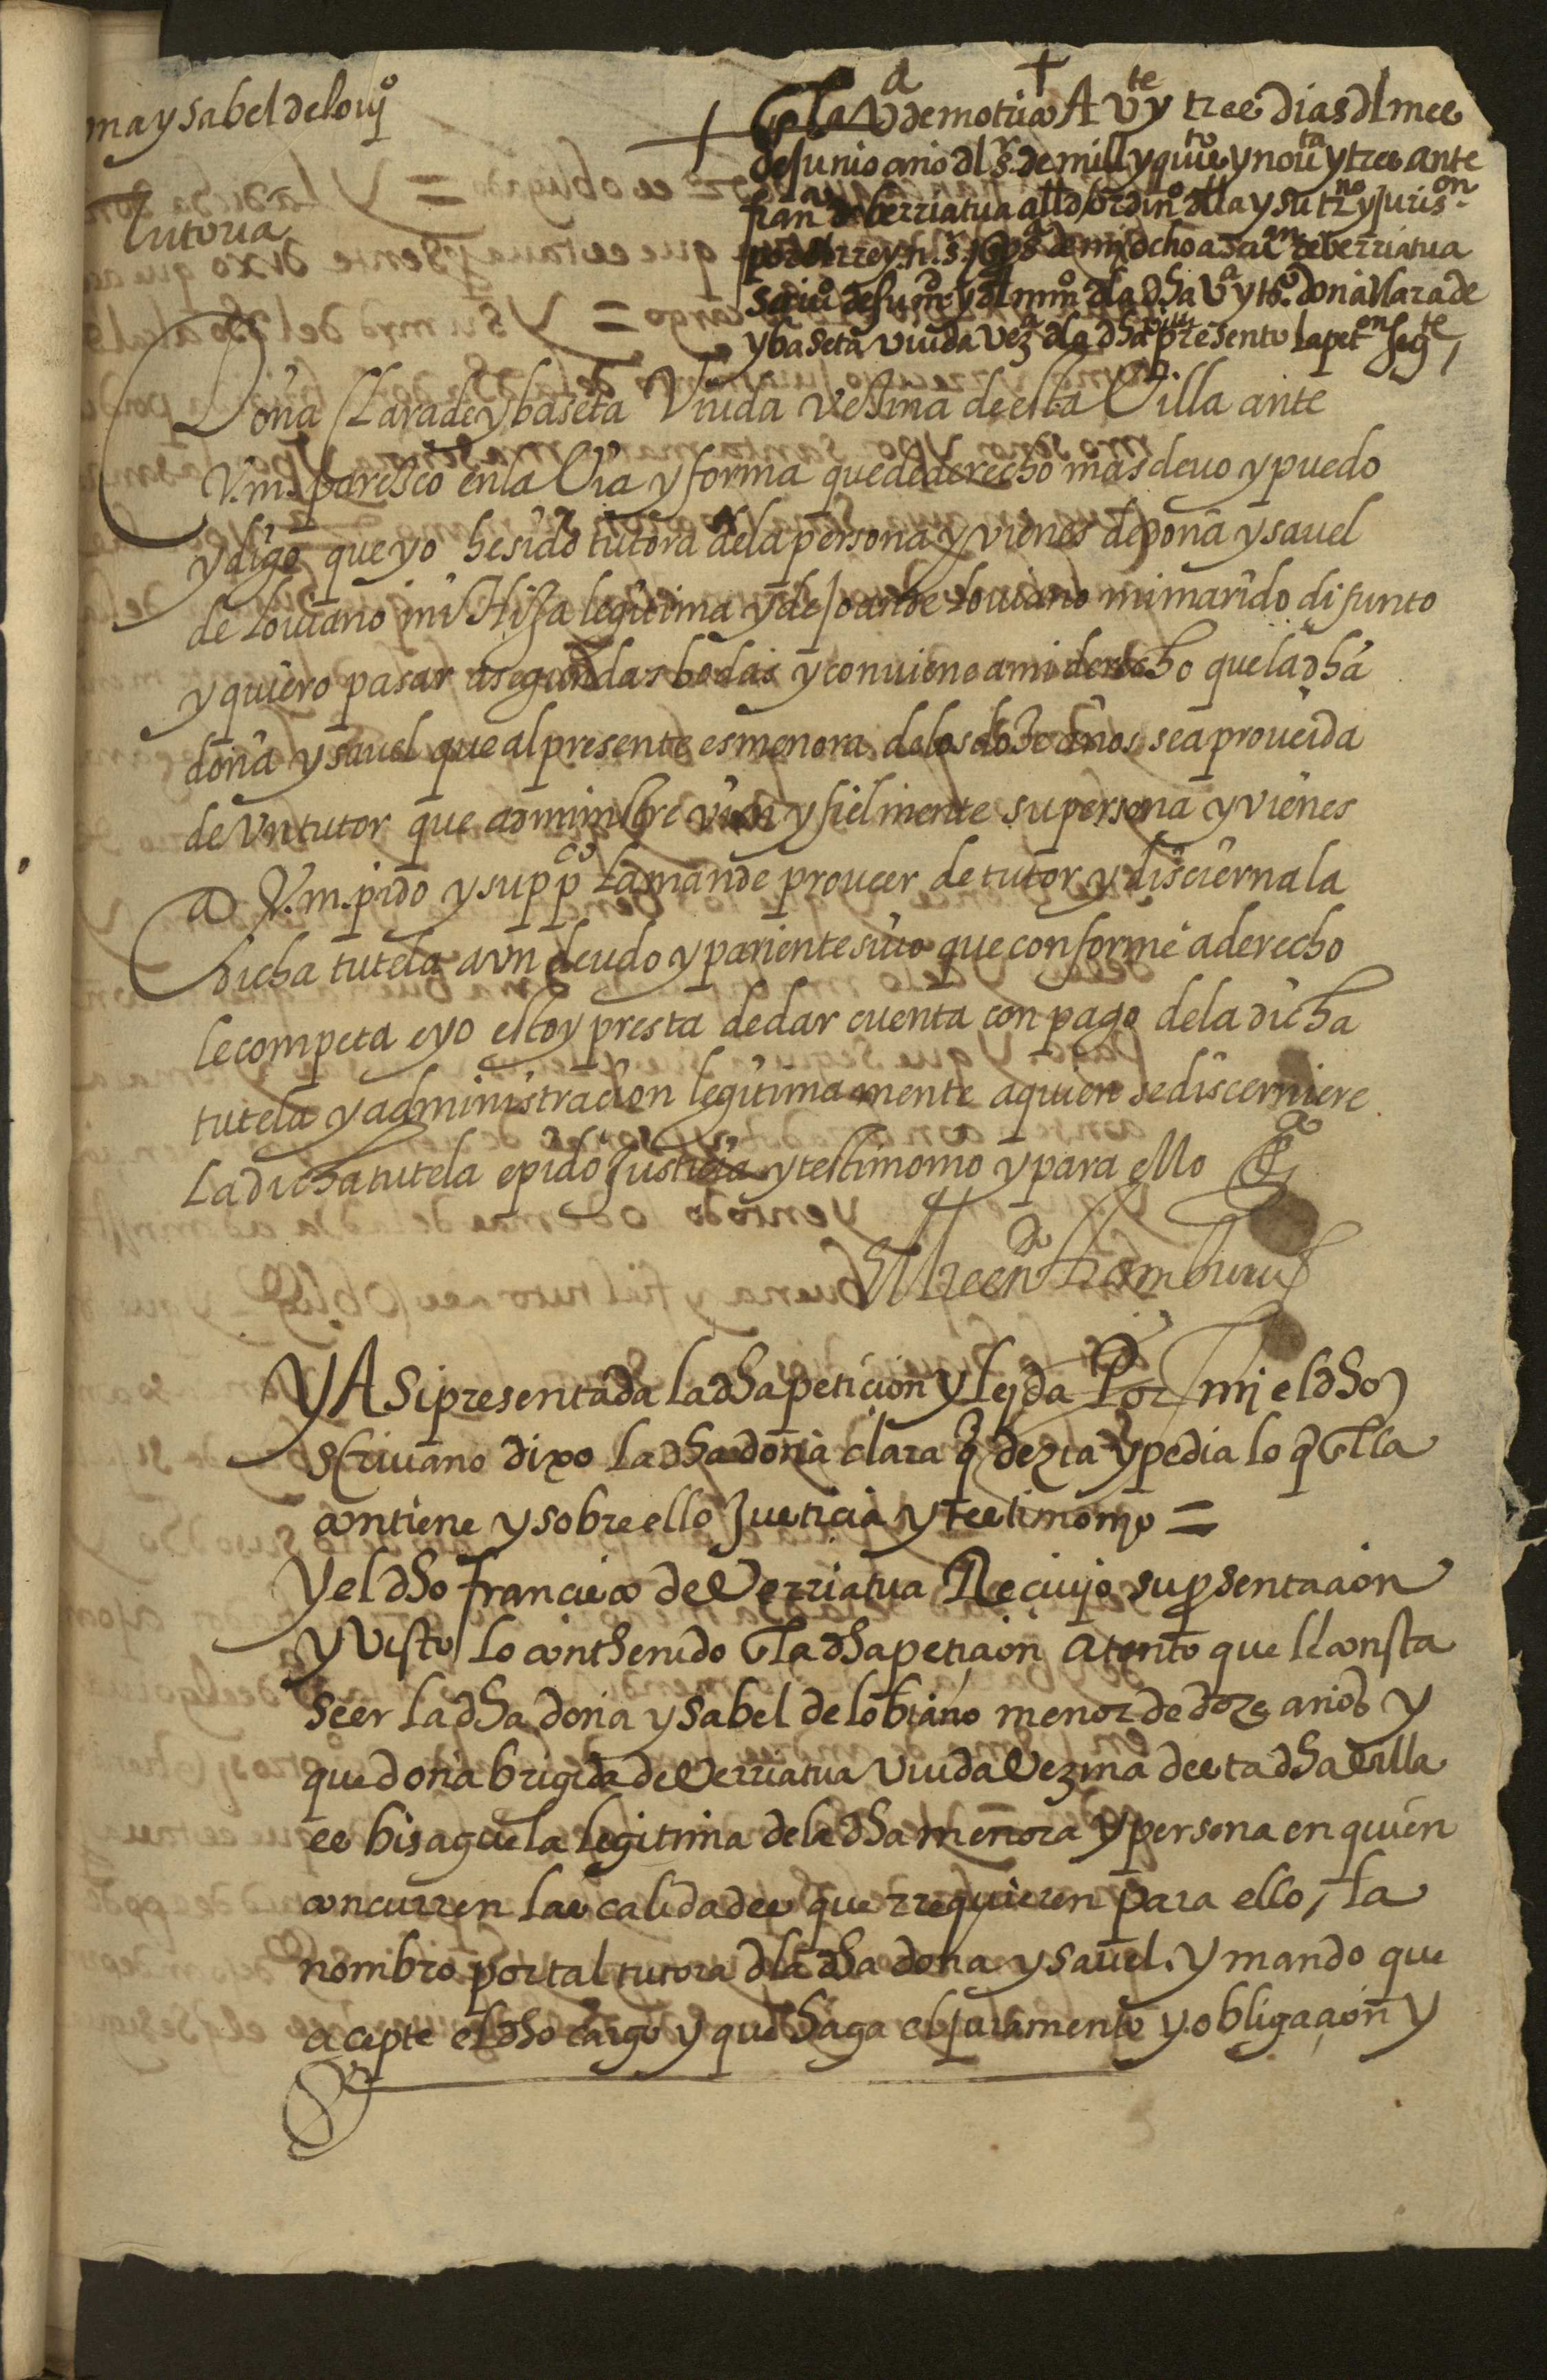 ña ysabel de louio
Tutoria
En la Va de motrico A vte y tree dias dl mee
de junio año dl sr. de mill y quios y nouta y tree ante
franco de berriatua alld ordino dlla y su trno y jurison
por el rrey n. s. y en pa de mi ochoa saez de berriatua
scriuo de su mt y dl nuo dla dha Va y to. doña clara de
ybaseta viuda veza dla dha va presento la peton sigte
Doña Clara de ybaseta Viuda vezina de esta Villa ante
V.m. paresco en la Via y forma que de derecho mas deuo y puedo
y digo que yo he sido tutora de la persona y vienes de doña ysauel
de Louiano mi Hija legitima y de Joan de Louiano mi marido difunto
y quiero pasar a segundas bodas y conuiene a mi derecho que la dha
doña ysauel que al presente es menora de los doze años sea proueida
de Vn tutor que administre vien y fielmente su persona y vienes
a V.m. pido y suppco la mande proueer de tutor y discierna la
dicha tutela a vn deudo y pariente suio que conforme a derecho
le competa e yo estoy presta de dar cuenta con pago de la dicha
tutela y administracion legitimamente a quien se discerniere
La dicha tutela e pido Justicia y testimonio y para ello
Y A Si presentada la dha peticion y leyda Por mi el dho
scriuano dixo la dha doña clara q dezia y pedia lo q en lla
contiene y sobre ello Justicia y testimonio =
Y el dho francisco de Verriatua Reciuio su presentacion
y visto lo conthenido en la dha peticion atento que le consta
seer la dha doña ysabel de lobiano menor de doze años y
que doña brigida de Verriatua viuda Vezina desta dha villa
es bisaguela legitima de la dha menora y persona en quien
concurren las calidades que rrequieren para ello, la
nombro por tal tutora dla dha doña ysauel. y mando que
acepte el dho cargo y que haga el juramento y obligacion y